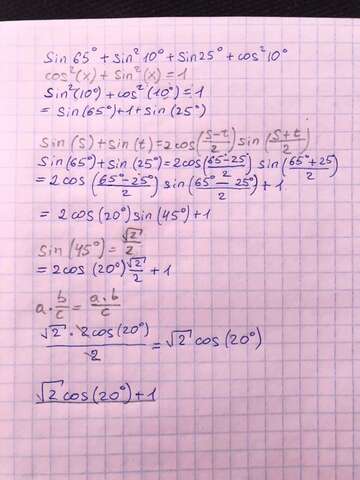 sin 65° + sin² 10° + sin 25° + cos² 10°
cos²(x) + sin²(x) = 1
sin²(10°) + cos²(10°) = 1
= sin(65°) + 1 + sin(25°)
sin(s) + sin(t) = 2cos((s-t)/2) sin((s+t)/2)
sin(65°) + sin(25°) = 2cos((65-25)/2) sin((65+25)/2)
= 2cos((65°-25°)/2) sin((65°-25°)/2) + 1
= 2cos(20°) sin(45°) + 1
sin(45°) = √2/2
= 2cos(20°) √2/2 + 1
a · b/c = a·b/c
√2 · 2cos(20°)/2 = √2 cos(20°)
√2 cos(20°) + 1